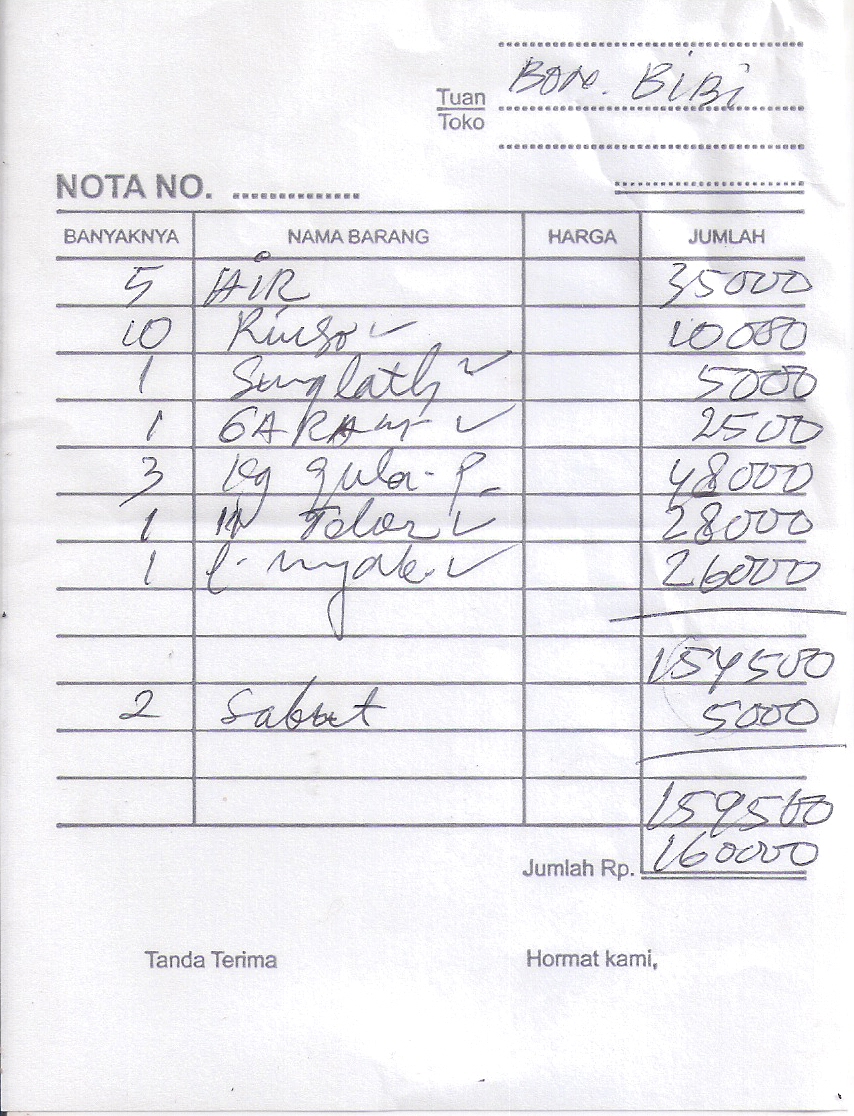 Tuan
Toko
Bon. BiBi
NOTA NO. ..............
BANYAKNYA NAMA BARANG HARGA JUMLAH
5 AiR 35000
10 Rinso 10000
1 Sunglath 5000
1 GARAM 2500
3 kg gula - P 48000
1 Telor 28000
1 l. nyak. 26000
154500
2 Sabut 5000
159500
Jumlah Rp. 160000
Tanda Terima Hormat kami,